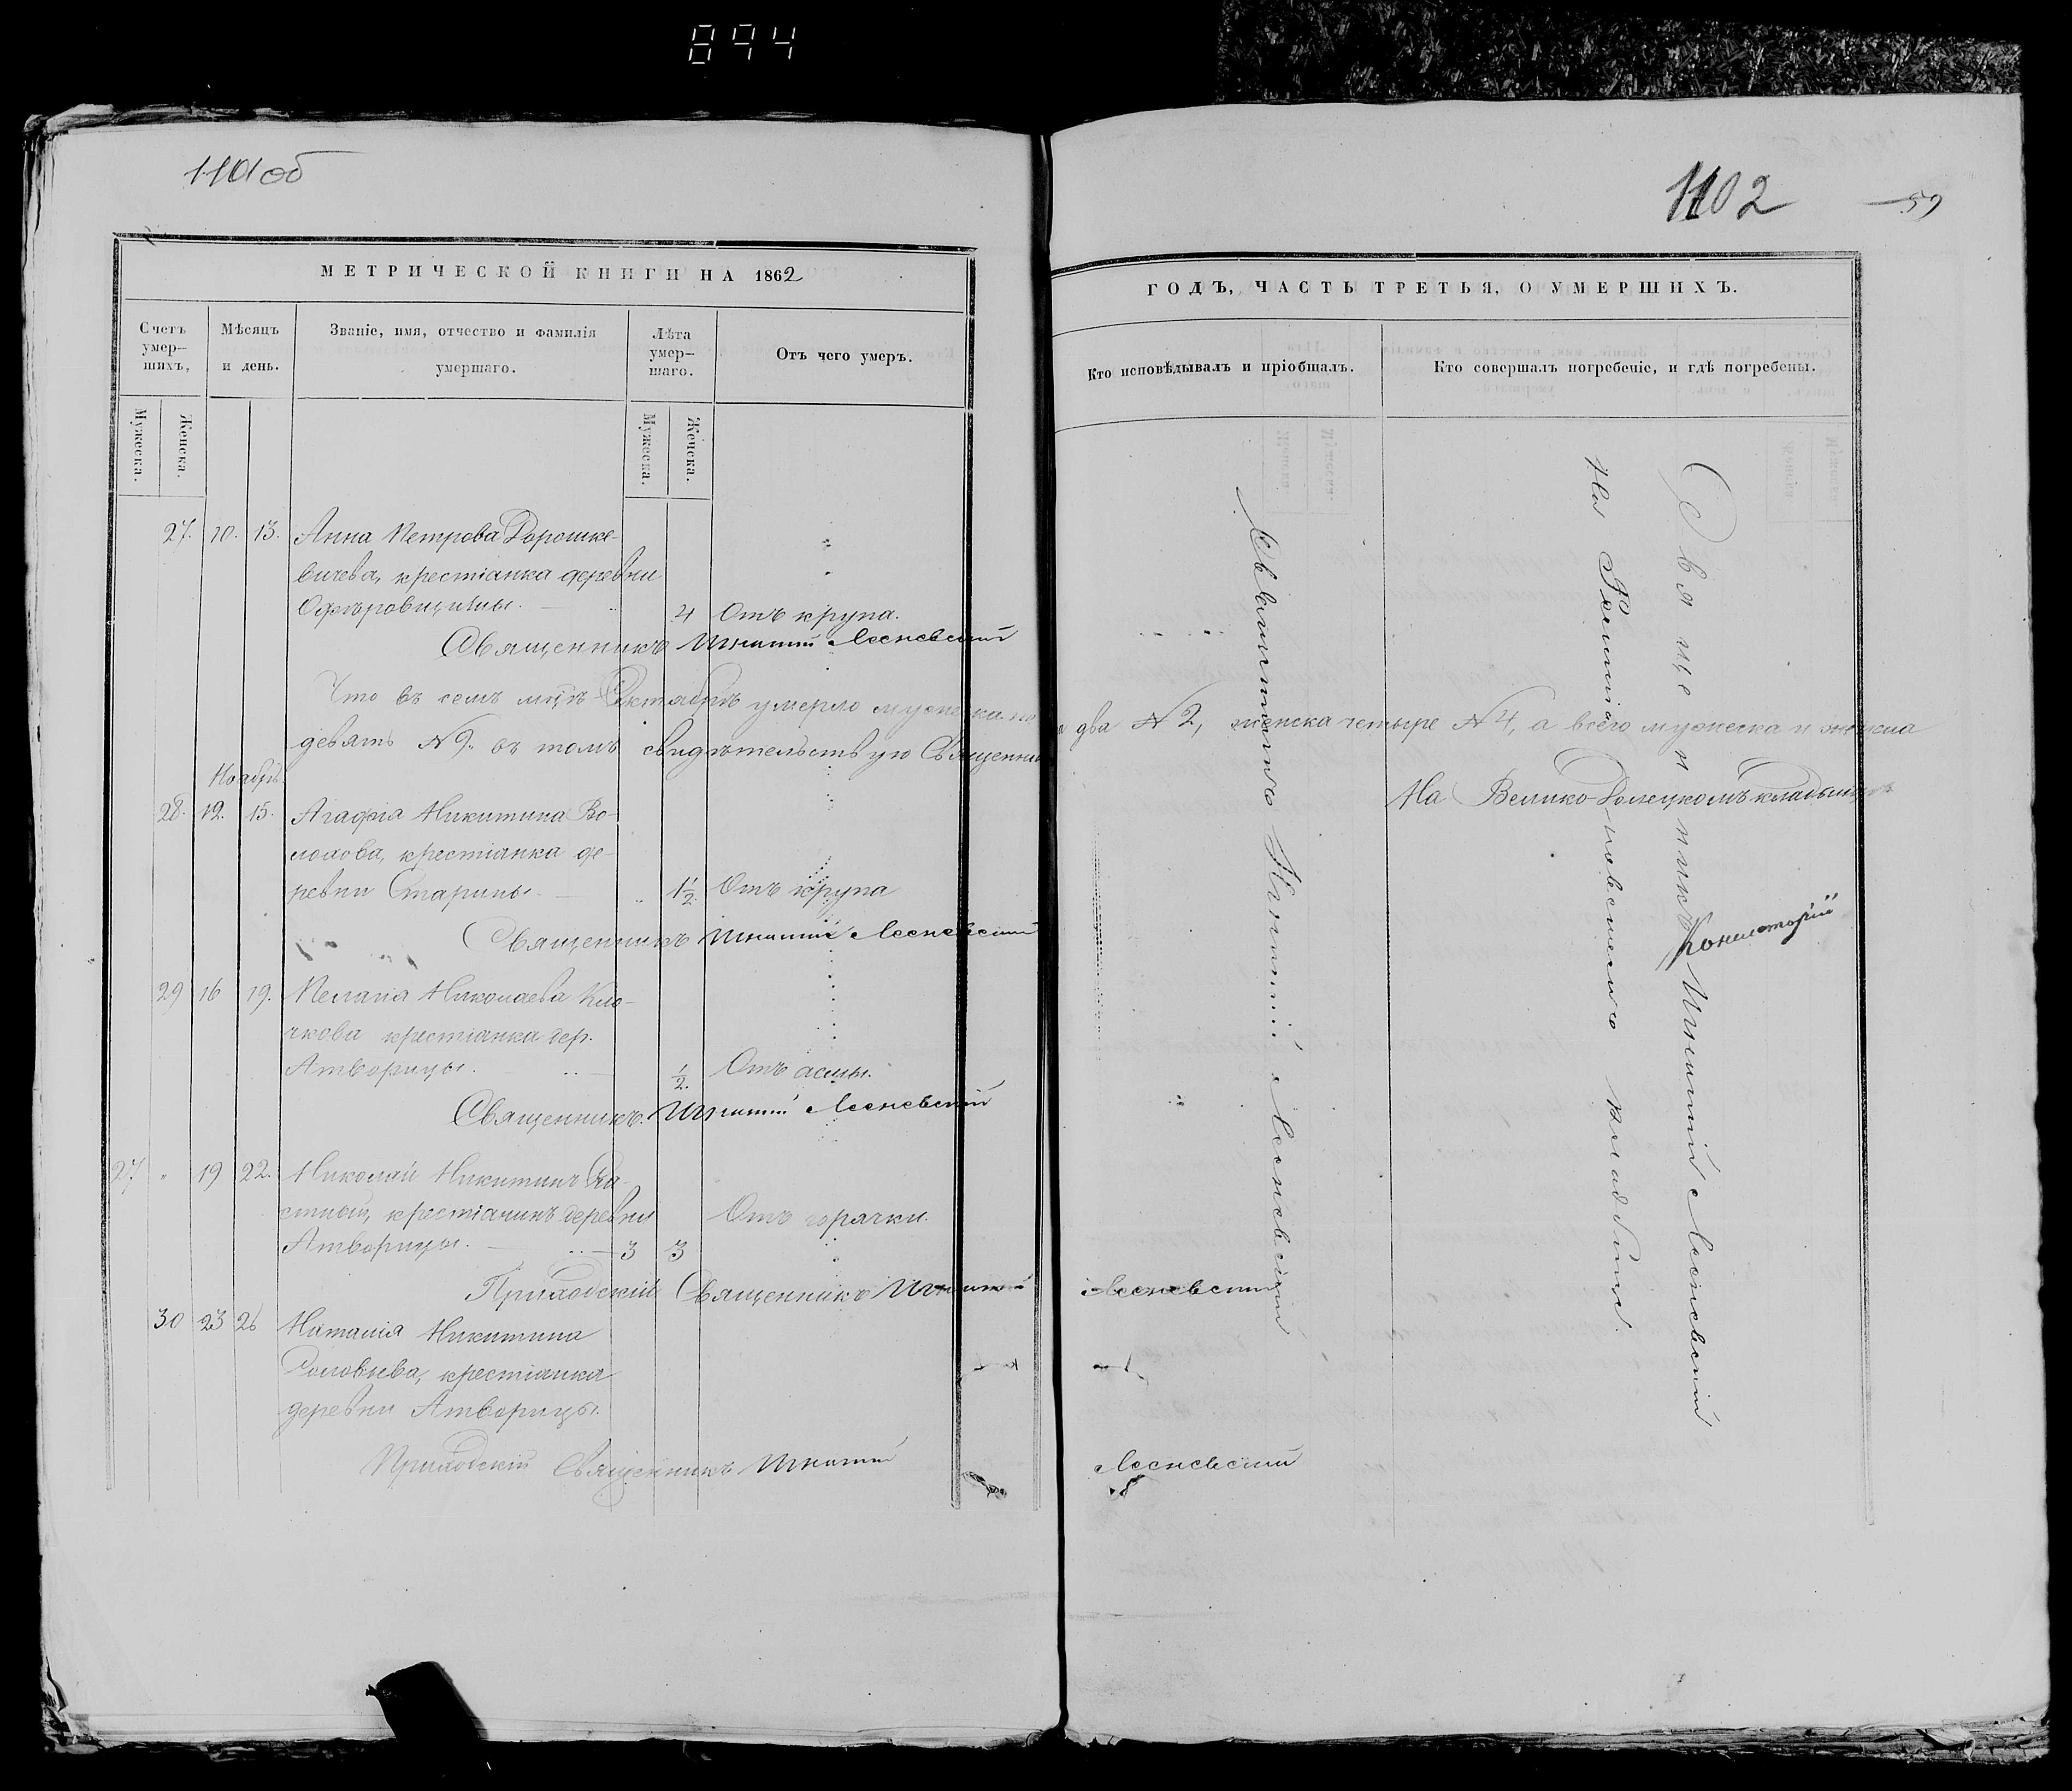 894
1101об
МЕТРИЧЕСКОЙ КНИГИ НА 1862
Счетъ умер—шихъ,
Мѣсяцъ и день.
Званіе, имя, отчество и фамилія умершаго.
Лѣта умер—шаго.
Отъ чего умеръ.
Мужеска.
Женска.
Мужеска.
Женска.
27. 10. 13. Анна Петрова Дорошке-
вичева, крестіанка деревни
4 Отъ крупа.
Священникъ Игнатій Лесневскій
Что въ семъ мцѣ Октябрѣ умерло мужеска
девять № 9. въ томъ свидѣтельствую Священник
Ноябрь.
28. 12. 15. Агафія Никитина Во-
лохова, крестіанка де-
ревни Старины. 1½ Отъ крупа
Священникъ Игнатій Лесневскій
29 16 19. Пелагія Николаева Кло-
чкова крестіанка дер.
Атворицы. ½. Отъ оспы.
Священникъ Игнатій Лесневскій
27 " 19 22. Николай Никитинъ
крестіанинъ деревни Отъ горячки.
Атворицы. 3 3
Приходскій Священникъ Игнатій
30 23 26 Наталія Никитина
Соловьева, крестіанка
деревни Атворицы.
Приходскій Священникъ Игнатій
1102
59
ГОДЪ, ЧАСТЬ ТРЕТЬЯ, О УМЕРШИХЪ.
Кто исповѣдывалъ и пріобщалъ.
Кто совершалъ погребеніе, и гдѣ погребены.
два № 2, женска четыре № 4, а всего мужеска и женска
На Велико-Долецкомъ кладбищѣ
Консисторіи
Лесневскій
Лесневскій
Священникъ Игнатій Лесневскій
На кладбищѣ.
Священникъ Игнатій Лесневскій